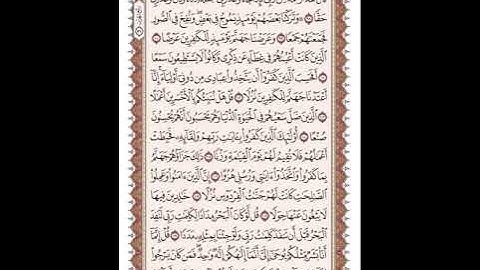 حَقًّا ۝ وَتَرَكْنَا بَعْضَهُمْ يَوْمَئِذٍ يَمُوجُ فِي بَعْضٍ وَنُفِخَ فِي الصُّورِ
فَجَمَعْنَاهُمْ جَمْعًا ۝ وَعَرَضْنَا جَهَنَّمَ يَوْمَئِذٍ لِلْكَافِرِينَ عَرْضًا ۝
الَّذِينَ كَانَتْ أَعْيُنُهُمْ فِي غِطَاءٍ عَنْ ذِكْرِي وَكَانُوا لَا يَسْتَطِيعُونَ سَمْعًا
۝ أَفَحَسِبَ الَّذِينَ كَفَرُوا أَنْ يَتَّخِذُوا عِبَادِي مِنْ دُونِي أَوْلِيَاءَ إِنَّا
أَعْتَدْنَا جَهَنَّمَ لِلْكَافِرِينَ نُزُلًا ۝ قُلْ هَلْ نُنَبِّئُكُمْ بِالْأَخْسَرِينَ أَعْمَالًا
۝ الَّذِينَ ضَلَّ سَعْيُهُمْ فِي الْحَيَاةِ الدُّنْيَا وَهُمْ يَحْسَبُونَ أَنَّهُمْ يُحْسِنُونَ
صُنْعًا ۝ أُولَٰئِكَ الَّذِينَ كَفَرُوا بِآيَاتِ رَبِّهِمْ وَلِقَائِهِ فَحَبِطَتْ
أَعْمَالُهُمْ فَلَا نُقِيمُ لَهُمْ يَوْمَ الْقِيَامَةِ وَزْنًا ۝ ذَٰلِكَ جَزَاؤُهُمْ جَهَنَّمُ
بِمَا كَفَرُوا وَاتَّخَذُوا آيَاتِي وَرُسُلِي هُزُوًا ۝ إِنَّ الَّذِينَ آمَنُوا وَعَمِلُوا
الصَّالِحَاتِ كَانَتْ لَهُمْ جَنَّاتُ الْفِرْدَوْسِ نُزُلًا ۝ خَالِدِينَ فِيهَا
لَا يَبْغُونَ عَنْهَا حِوَلًا ۝ قُلْ لَوْ كَانَ الْبَحْرُ مِدَادًا لِكَلِمَاتِ رَبِّي لَنَفِدَ
الْبَحْرُ قَبْلَ أَنْ تَنْفَدَ كَلِمَاتُ رَبِّي وَلَوْ جِئْنَا بِمِثْلِهِ مَدَدًا ۝ قُلْ إِنَّمَا
أَنَا بَشَرٌ مِثْلُكُمْ يُوحَىٰ إِلَيَّ أَنَّمَا إِلَٰهُكُمْ إِلَٰهٌ وَاحِدٌ فَمَنْ كَانَ يَرْجُوا